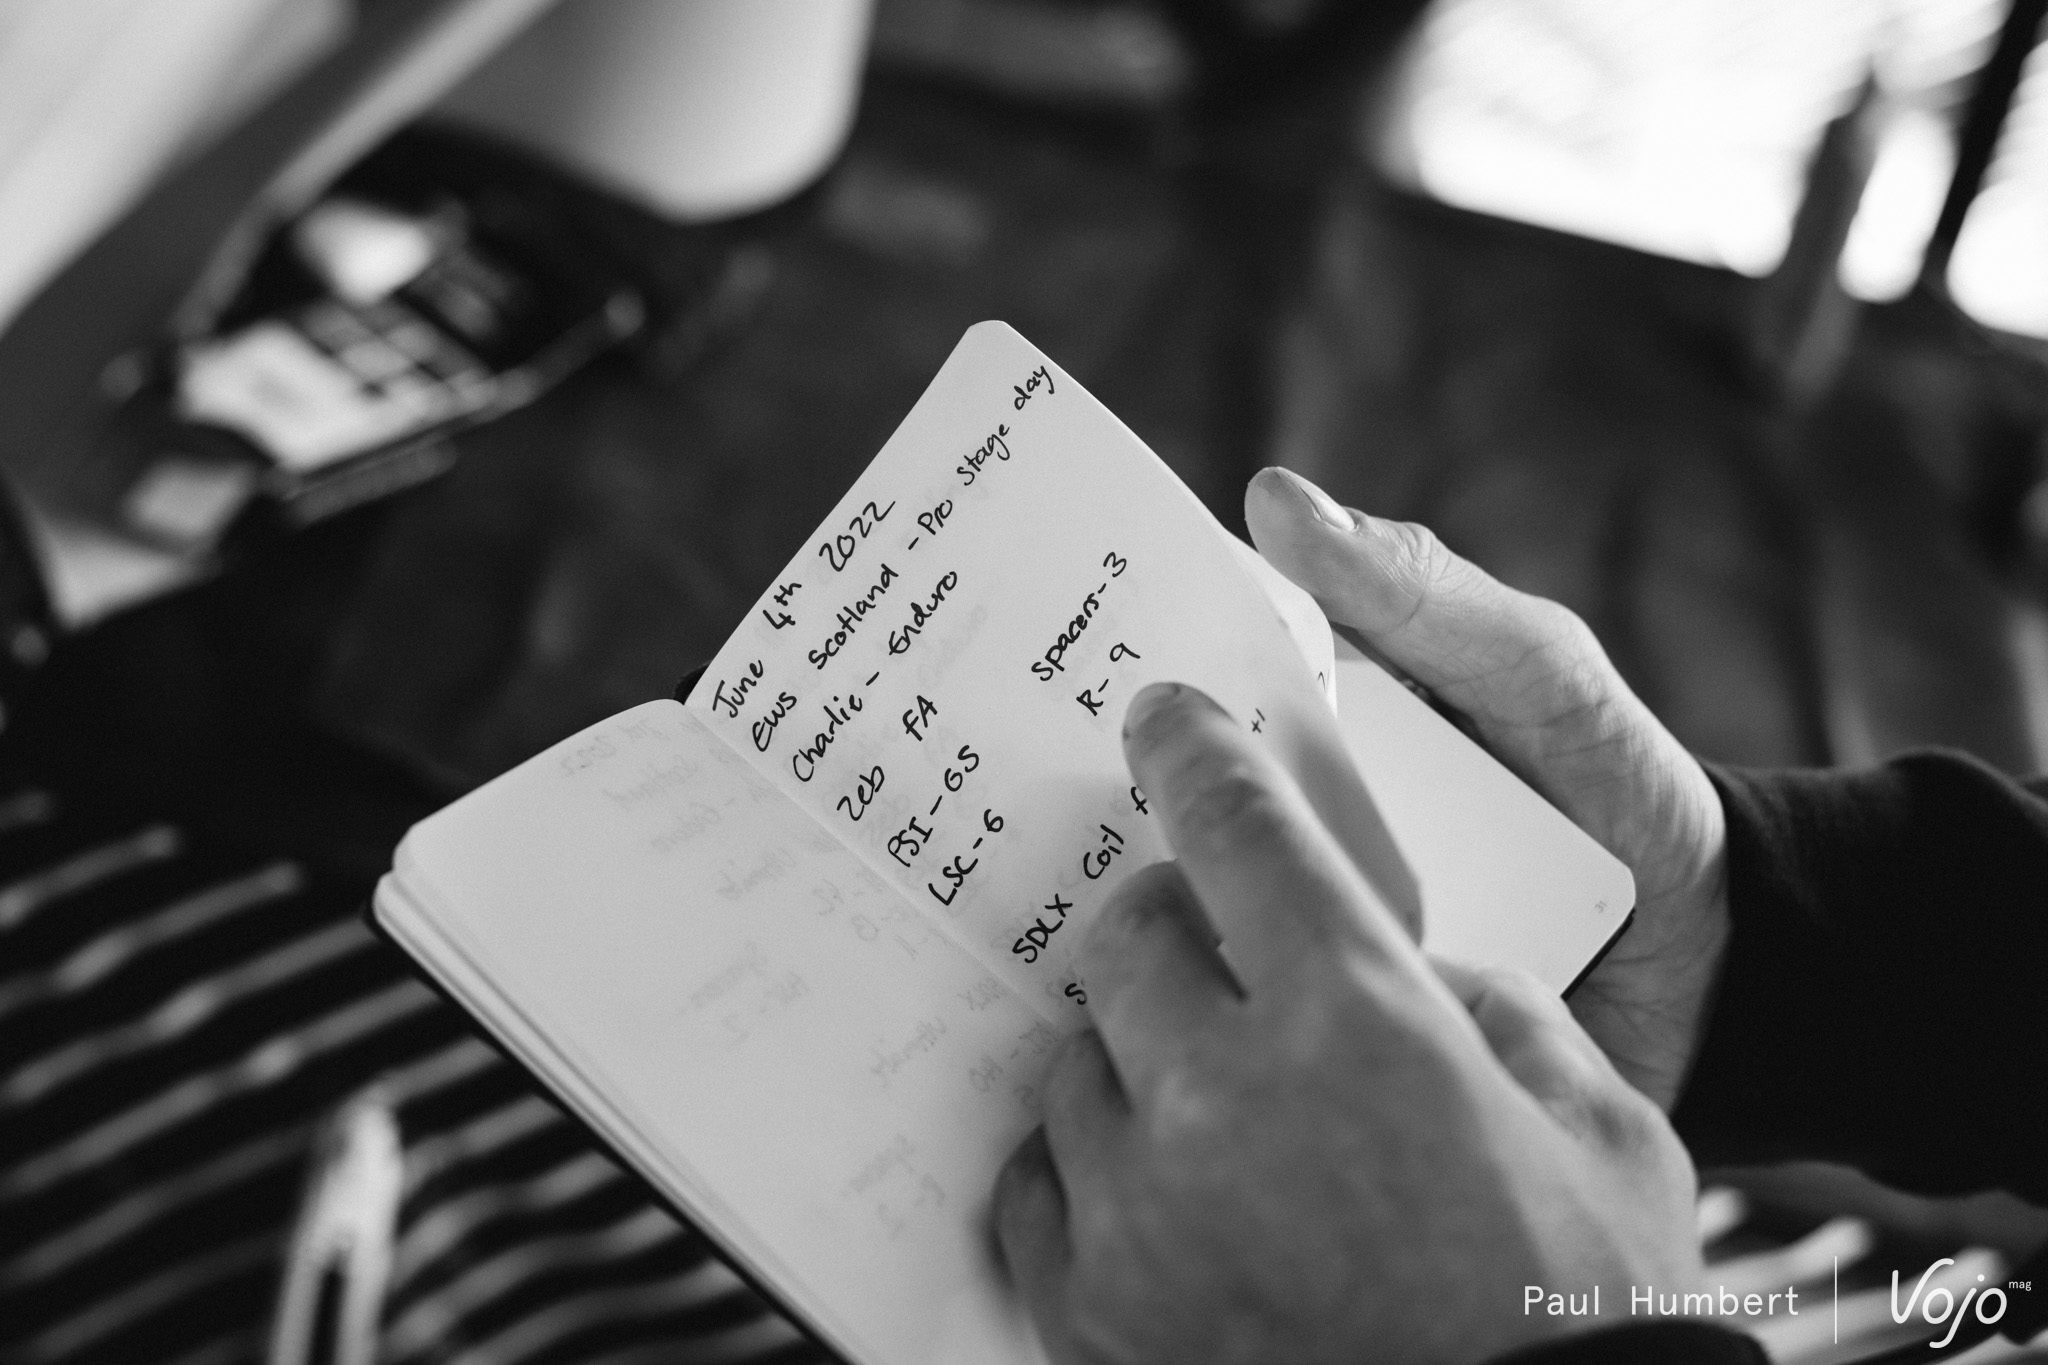 June 4th 2022
EWS Scotland - Pro stage day
Charlie - Enduro
Zeb FA
PSI - 65 Spacers - 3
LSC - 6 R - 9
SDLX Coil
+1
31
Paul Humbert
Vojo mag